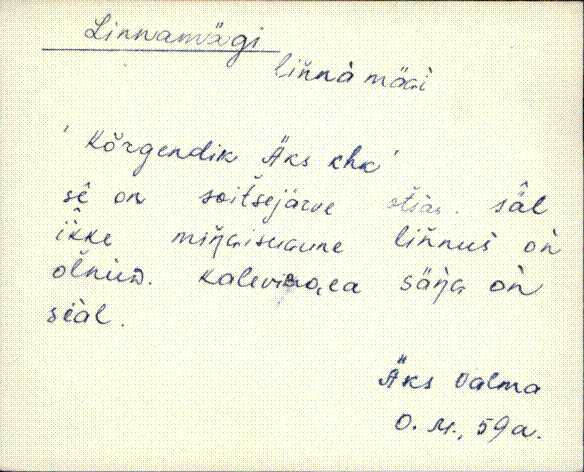 Linnamägi
liňnà mäɢi
'Kõrgendik Äks khk'
sê on soiťsejärve otsan. säl
îkke miŋɢisuɢune liňnus òn
olˇnùᴅ. kalevipoɛa säŋɢ òn
seàl.
Äks Valma
O. M., 59 a.